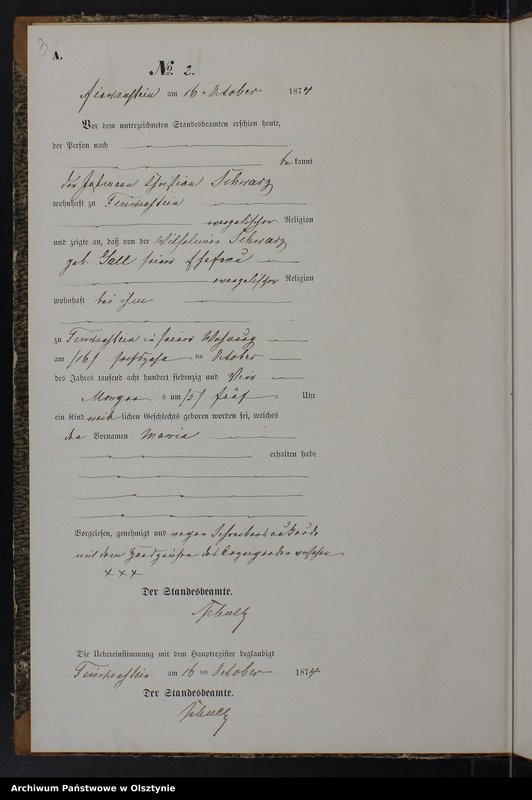 3
A.
No. 2.
Finkenstein am 16ten October 1874
Vor dem unterzeichneten Standesbeamten erschien heute,
der Person nach
be kannt
der Christian Schwarz
wohnhaft zu Finkenstein
evangelischer Religion
und zeigte an, daß von der Wilhelmine Schwarz
geb. Gall seiner Ehefrau
evangelischer Religion
wohnhaft bei ihm
zu Finkenstein in seiner Wohnung
am /16/ sechszehn ten October
des Jahres tausend acht hundert siebenzig und Vier
Morgen s um /5/ fünf Uhr
ein Kind weib lichen Geschlechts geboren worden sei, welches
den Vornamen Maria
erhalten habe
Vorgelesen, genehmigt und wegen Schreibensunkunde
mit dem Handzeichen des Anzeigenden versehen
+++
Der Standesbeamte.
Die Uebereinstimmung mit dem Hauptregister beglaubigt
Finkenstein am 16 ten October 1874
Der Standesbeamte.
Archiwum Państwowe w Olsztynie